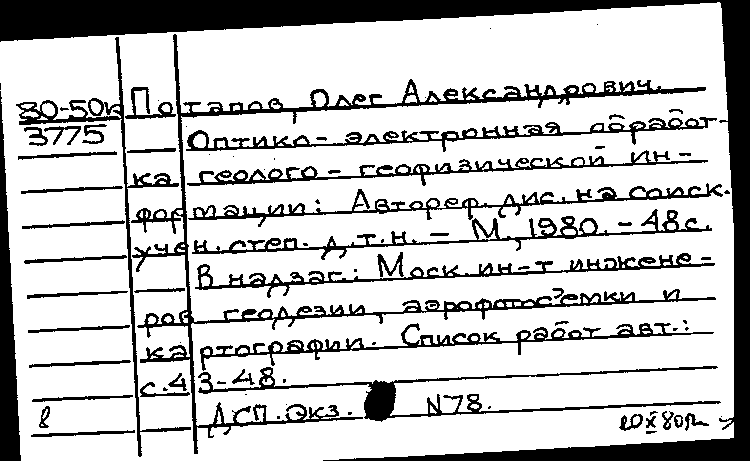 80-50к Потапов, Олег Александрович.
3775 Оптико-электронная обработ-
ка геолого-геофизической ин-
формации: Автореф. дис. на соиск.
учен. степ. д.т.н. – М., 1980. – 48 с.
В надзаг.: Моск. ин-т инжене-
ров геодезии, аэрофотосъемки и
картографии. Список работ авт.:
с. 43-48.
8 ДСП. Экз. N78.
20 X 80